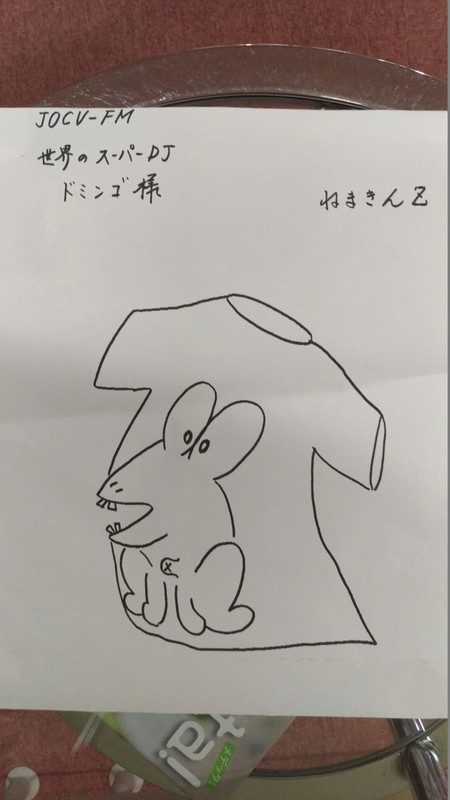 JOCV-FM
世界のスーパーDJ
ドミンゴ様
ねまきんZ
ta!